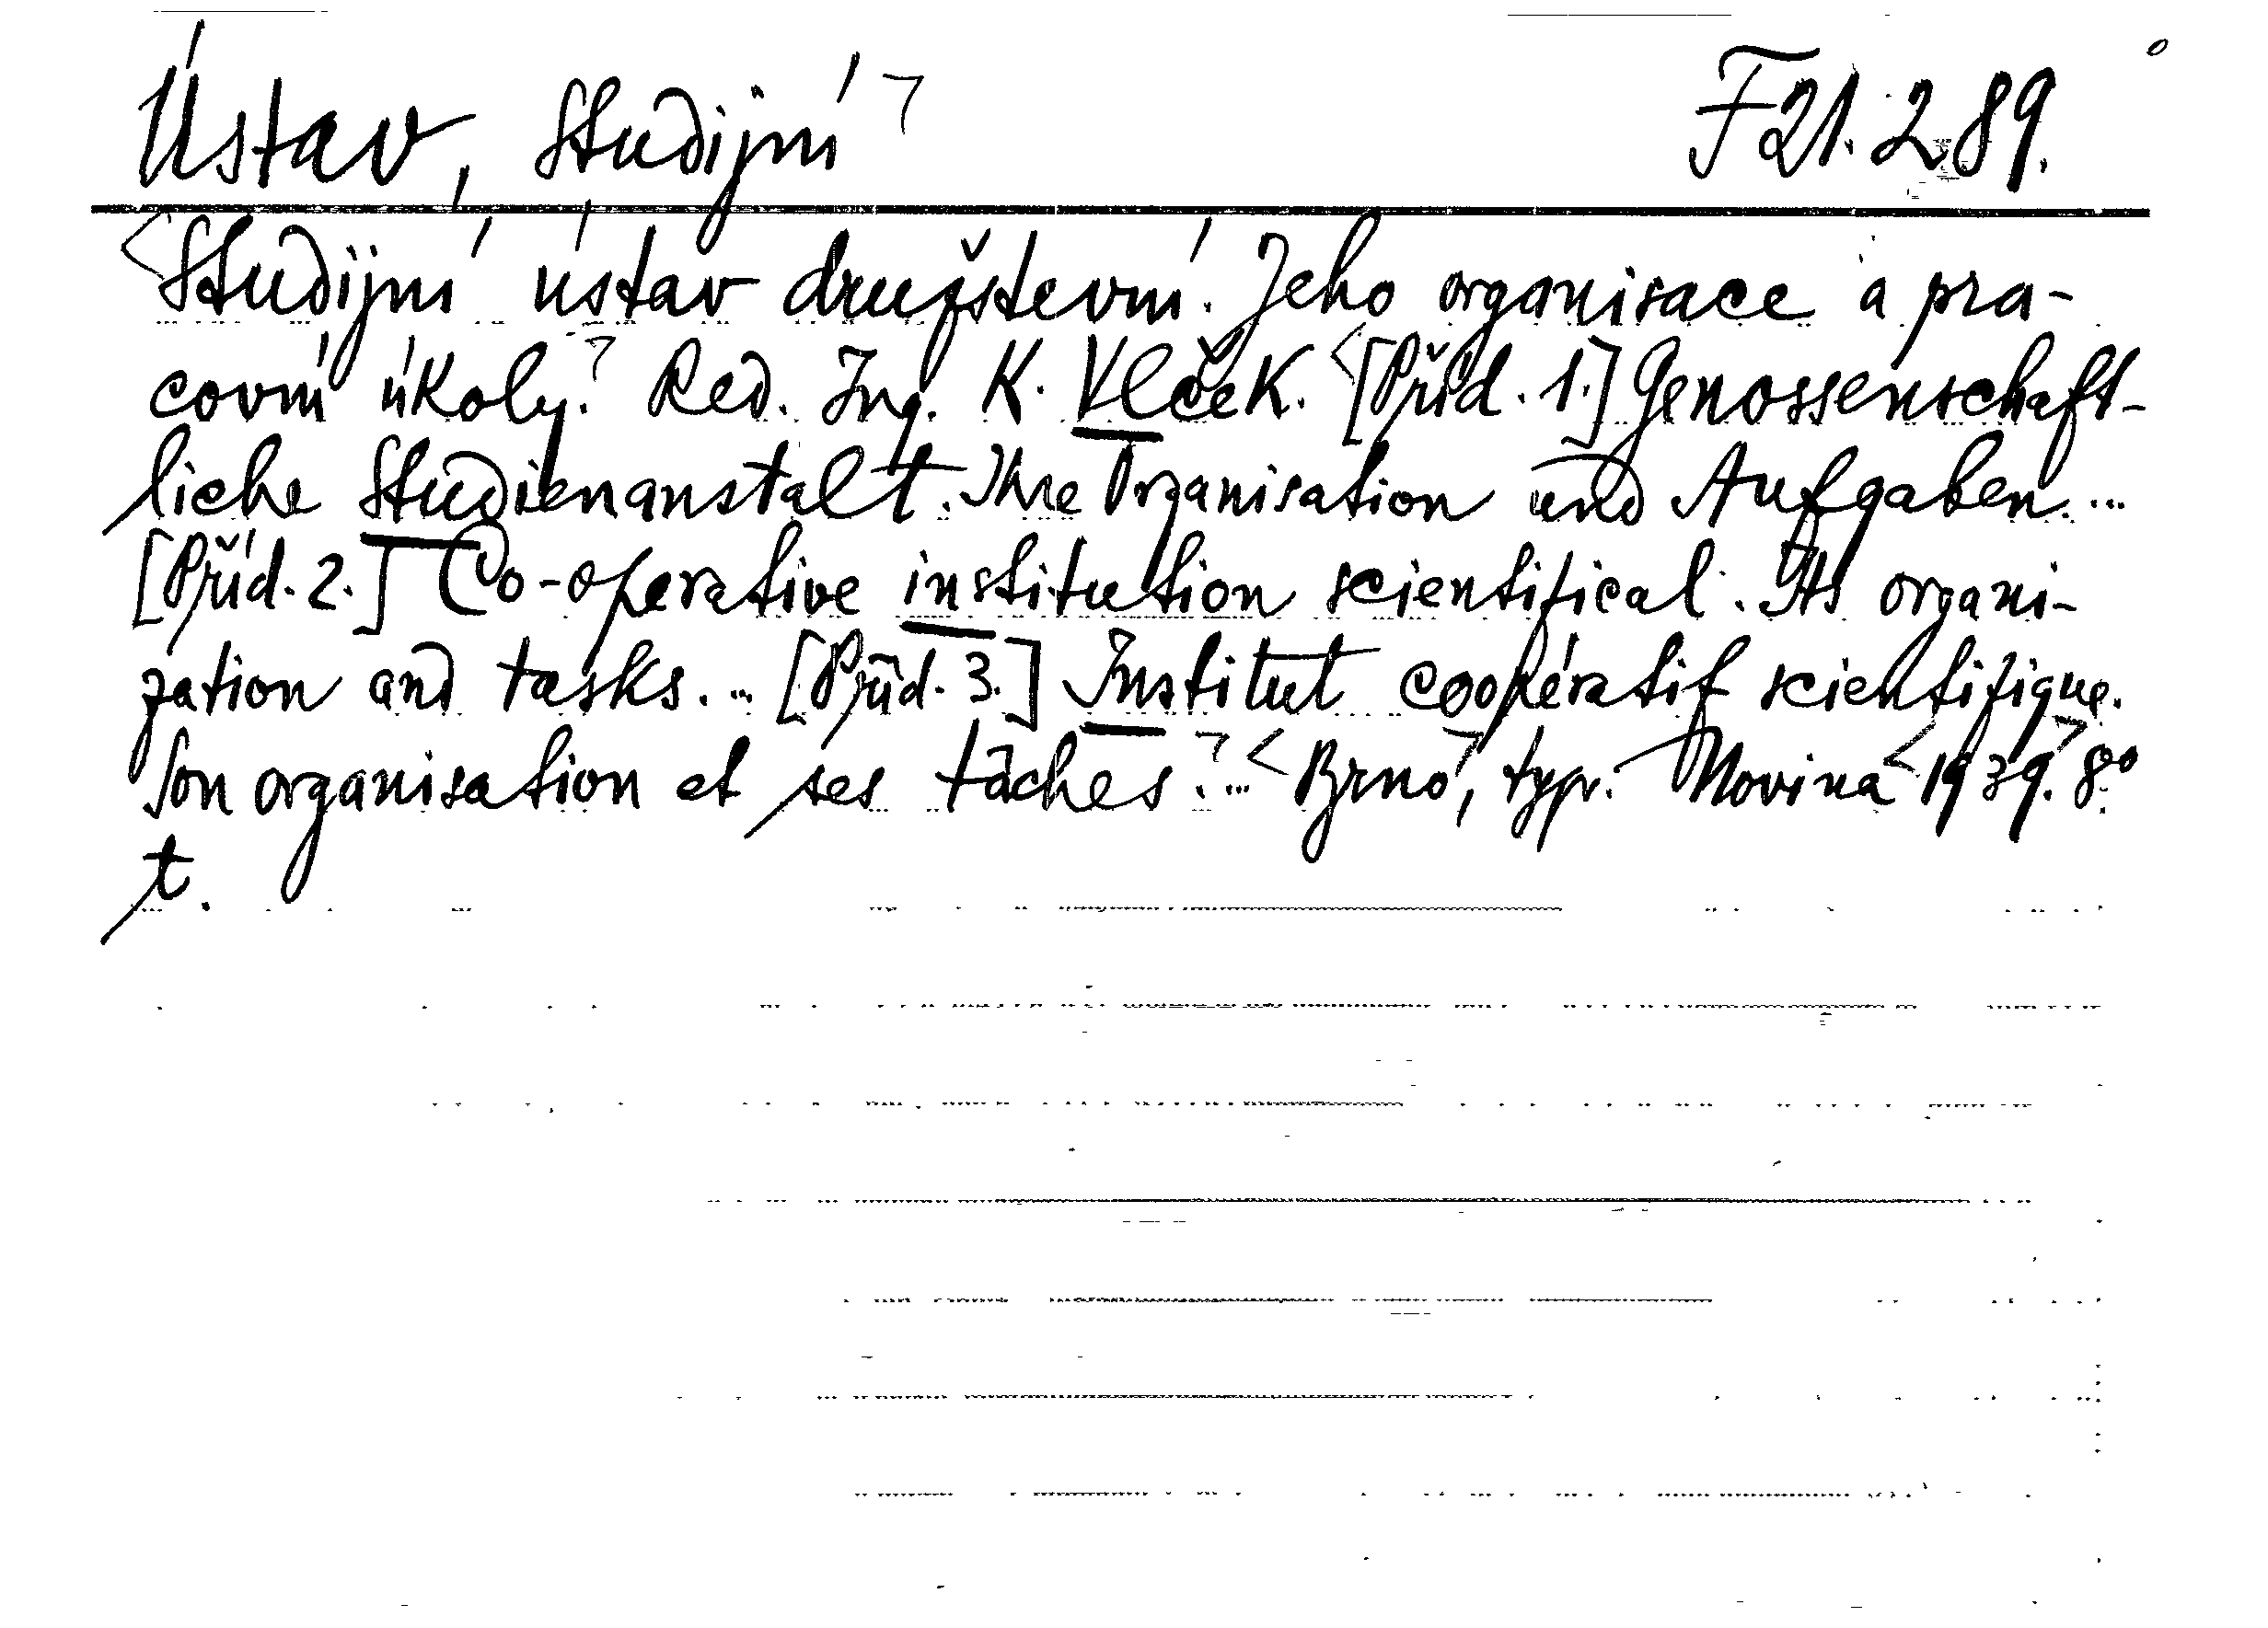 Ústav, studijní F 21.289.
Studijní ústav družstevní. Jeho organisace a pra-
covní úkoly. Red. Ing. K. Vlček. [Příd. 1.] Genossenschaft-
liche Studienanstalt. Ihre Organisation und Aufgaben...
[Příd. 2.] Co-operative institution scientifical. Its organi-
zation and tasks... [Příd. 3.] Institut coopératif scientifique.
Son organisation et ses tâches... Brno, typ. Novina 1939. 8°.
t.